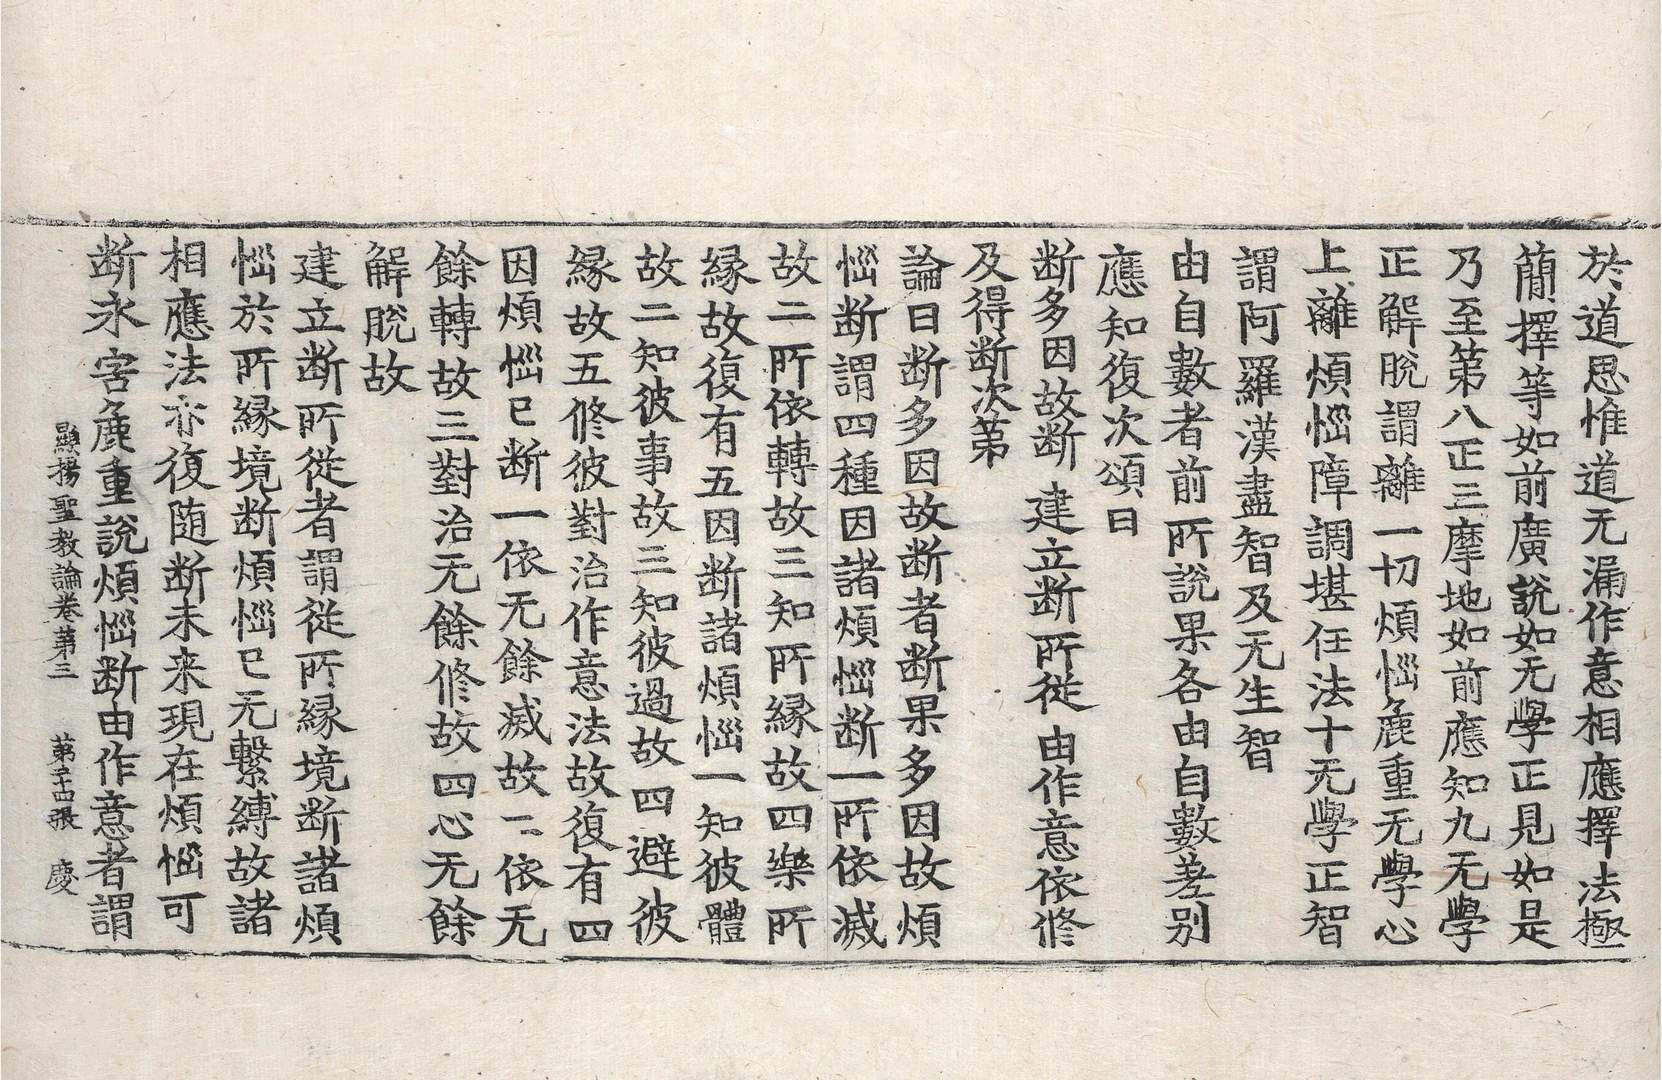 於道思惟道无漏作意相應擇法極
簡擇等如前廣說如无學正見如是
乃至第八正三摩地如前應知九无學
正解脫謂離一切煩惱麁重无學心
上離煩惱障調堪任法十无學正智
謂阿羅漢盡智及无生智
由自數者前所說果各由自數差别
應知復次頌曰
断多因故断　建立断所從　由作意依修
及得断次第
論曰断多因故断者断果多因故煩
惱断謂四種因諸煩惱断一所依滅
故二所依轉故三知所緣故四樂所
緣故復有五因断諸煩惱一知彼體
故二知彼事故三知彼過故四避彼
緣故五修彼對治作意法故復有四
因煩惱已断一依无餘滅故二依无
餘轉故三對治无餘修故四心无餘
解脫故
建立断所從者謂從所緣境断諸煩
惱於所緣境断煩惱已无繫縛故諸
相應法亦復随断未来現在煩惱可
断永害麁重說煩惱断由作意者謂
顯揚聖教論卷第三　第二十四張　慶